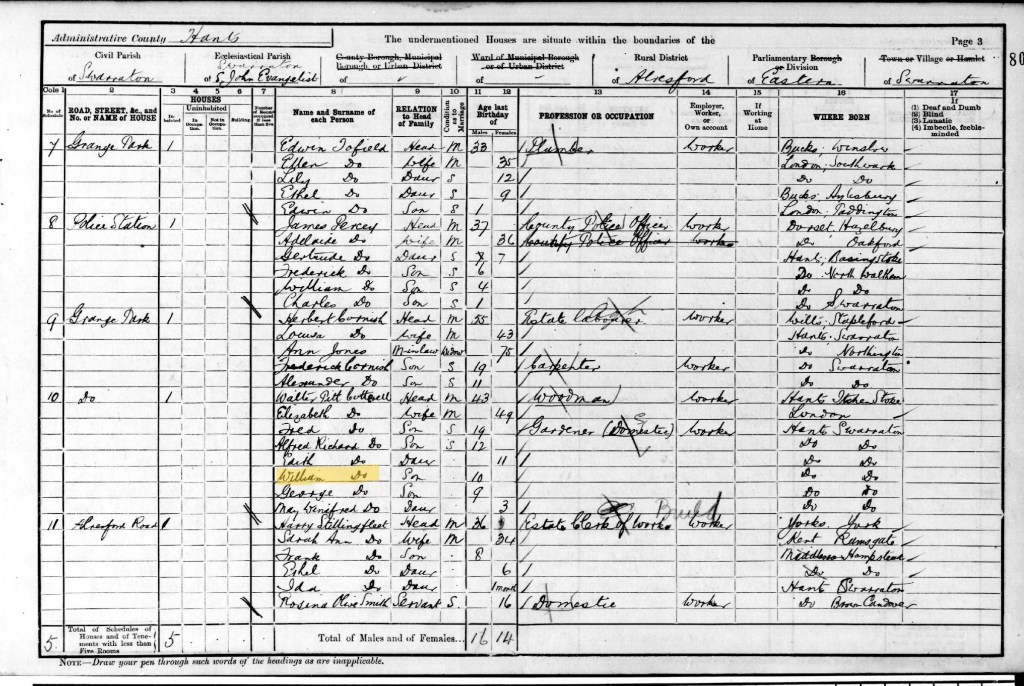 Administrative County Hants The undermentioned Houses are situate within the boundaries of the Page 3
80
Civil Parish Ecclesiastical Parish County Borough, Municipal Borough or Urban District Ward of Municipal Borough or of Urban District Rural District Parliamentary Borough or Division Town or Village or Hamlet
of Swarraton of Swarraton St John Evangelist of of of Alresford of Eastern of Swarraton
Cols 1 2 3 4 5 6 7 8 9 10 11 12 13 14 15 16 17
No. of Schedule ROAD, STREET, &c., and No. or NAME of HOUSE HOUSES Inhabited Uninhabited In Occupation. Not in Occupation. Building. Number of Rooms occupied if less than five Name and Surname of each Person RELATION to Head of Family Condition as to Marriage Age last Birthday of Males Females PROFESSION OR OCCUPATION Employer, Worker, or Own account If Working at Home WHERE BORN If (1) Deaf and Dumb (2) Blind (3) Lunatic (4) Imbecile, feeble-minded
7 Grange Park 1 Edwin Tofield Head M 33 Plumber Worker Bucks; Winslow
Ellen Do Wife M 35 London; Southwark
Lily Do Daur S 12 Do Do
Ethel Do Daur S 9 Bucks; Aylesbury
Edwin Do Son S 1 London; Paddington
8 Police Station 1 James Percey Head M 37 County Police Officer Worker Dorset, Hazelbury
Adelaide Do Wife M 36 County Police Officer Worker Do Oakford
Gertrude Do Daur S 7 Hants; Basingstoke
Frederick Do Son S 6 Do North Waltham
William Do Son S 4 Do Do
Charles Do Son S 1 Do Swarraton
9 Grange Park 1 Herbert Cornish Head M 55 Estate labourer Worker Wilts; Stapleford
Louisa Do Wife M 43 Hants Swarraton
Ann Jones Minlaw Widow 75 Do Northington
Frederick Cornish Son S 19 Carpenter Worker Do Swarraton
Alexander Do Son S 11 Do Do
10 Do 1 Walter Pitt Cotterell Head M 43 Woodman Worker Hants Itchen Stoke
Elizabeth Do Wife M 49 London
Fred Do Son S 19 Gardener (Domestic) Worker Hants Swarraton
Alfred Richard Do Son S 12 Do Do
Edith Do Daur 11 Do Do
William Do Son 10 Do Do
George Do Son 9 Do Do
May Winifred Do Daur 3 Do Do
11 Alresford Road 1 Harry Stillingfleet Head M 36 Estate Clerk of Works Build Worker Yorks. York
Sarah Ann Do Wife M 34 Kent Ramsgate
Frank Do Son 8 Middlesex Hampstead
Ethel Do Daur 6 Do Do
Ida Do Daur 1 month Hants Swarraton
Rosina Olive Smith Servant S 16 Domestic Worker Do Brown Candover
5 Total of Schedules of Houses and of Tenements with less than Five Rooms 5 Total of Males and of Females... 16 14
NOTE—Draw your pen through such words of the headings as are inapplicable.